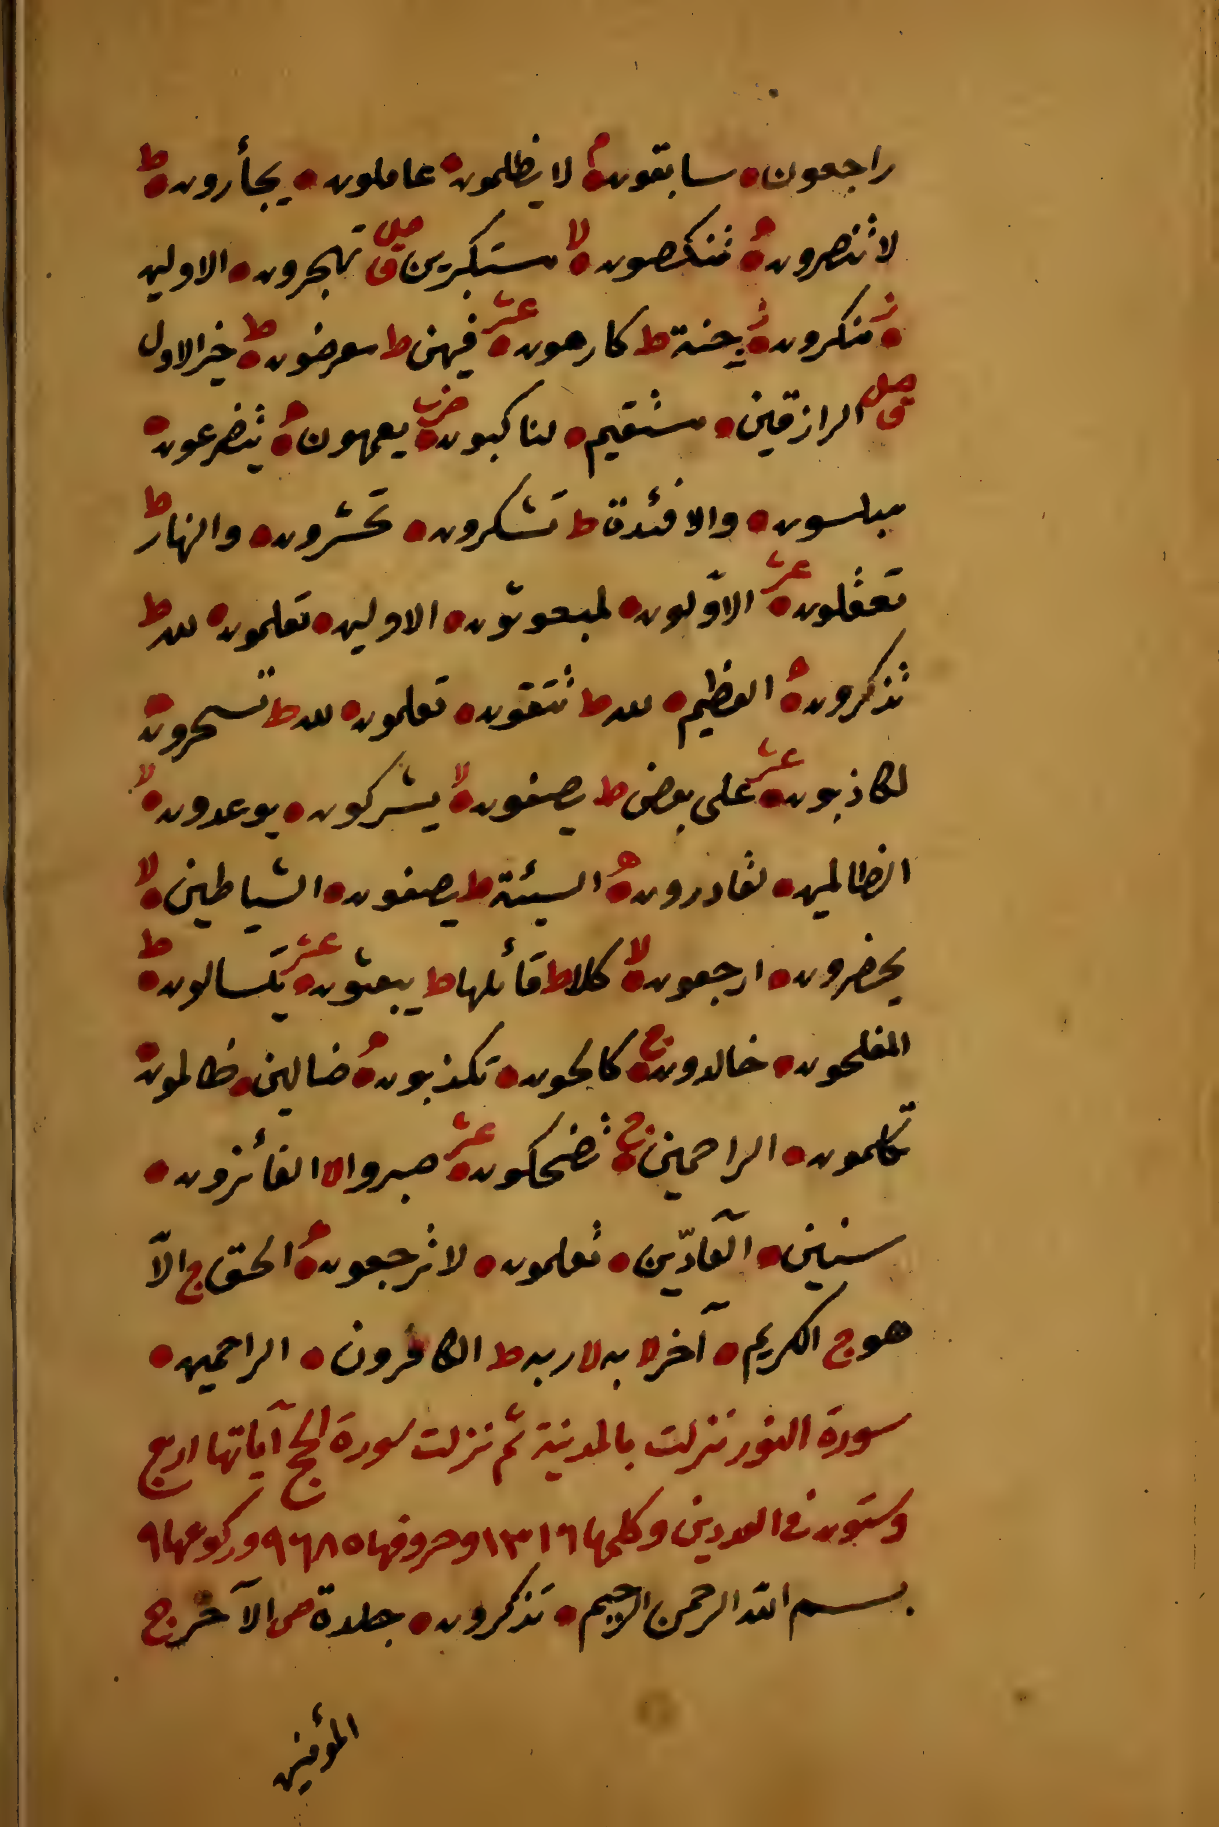 راجعون • سابقون م لا يظلمون • عاملون • يجأرون ط
لا تنصرون ه تنكصون لا مستكبرين صلى ق تهجرون • الاولين
ز منكرون ز به جنة ط كارهون عشر فيهن ط معرضون ط خير الاول
صلى ق الرازقين • مستقيم • لناكبون حزب يعمهون ه يتضرعون •
مبلسون • والافئدة ط تشكرون • تحشرون • والنهار ط
تعقلون عشر الاولون • لمبعوثون • الاولين • تعلمون • لله ط
تذكرون ه العظيم • لله ط تتقون • تعلمون • لله ط تسحرون •
لكاذبون عشر على بعض ط يصفون لا يشركون • يوعدون لا
الظالمين • لقادرون ه السيئة ط يصفون • الشياطين لا
يحضرون • ارجعون لا كلا ط قائلها ط يبعثون عشر يتسالون ط
المفلحون • خالدون ج كالحون • تكذبون ه ضالين • ظالمون •
تكلمون • الراحمين ج تضحكون عشر صبروا لا الفائزون •
سنين • العادّين • تعلمون • لا ترجعون ه الحق ج الّا
هو ج الكريم • آخر لا به لا ربه ط الكافرون • الراحمين •
سورة النور نزلت بالمدينة ثم نزلت سورة الحج آياتها اربع
وستون في العددين وكلمها ١٣١٦ وحروفها ٩٦٨٥ وركوعها ٩
بسم الله الرحمن الرحيم • تذكرون • جلدة ص الآخر ج
المؤمنين